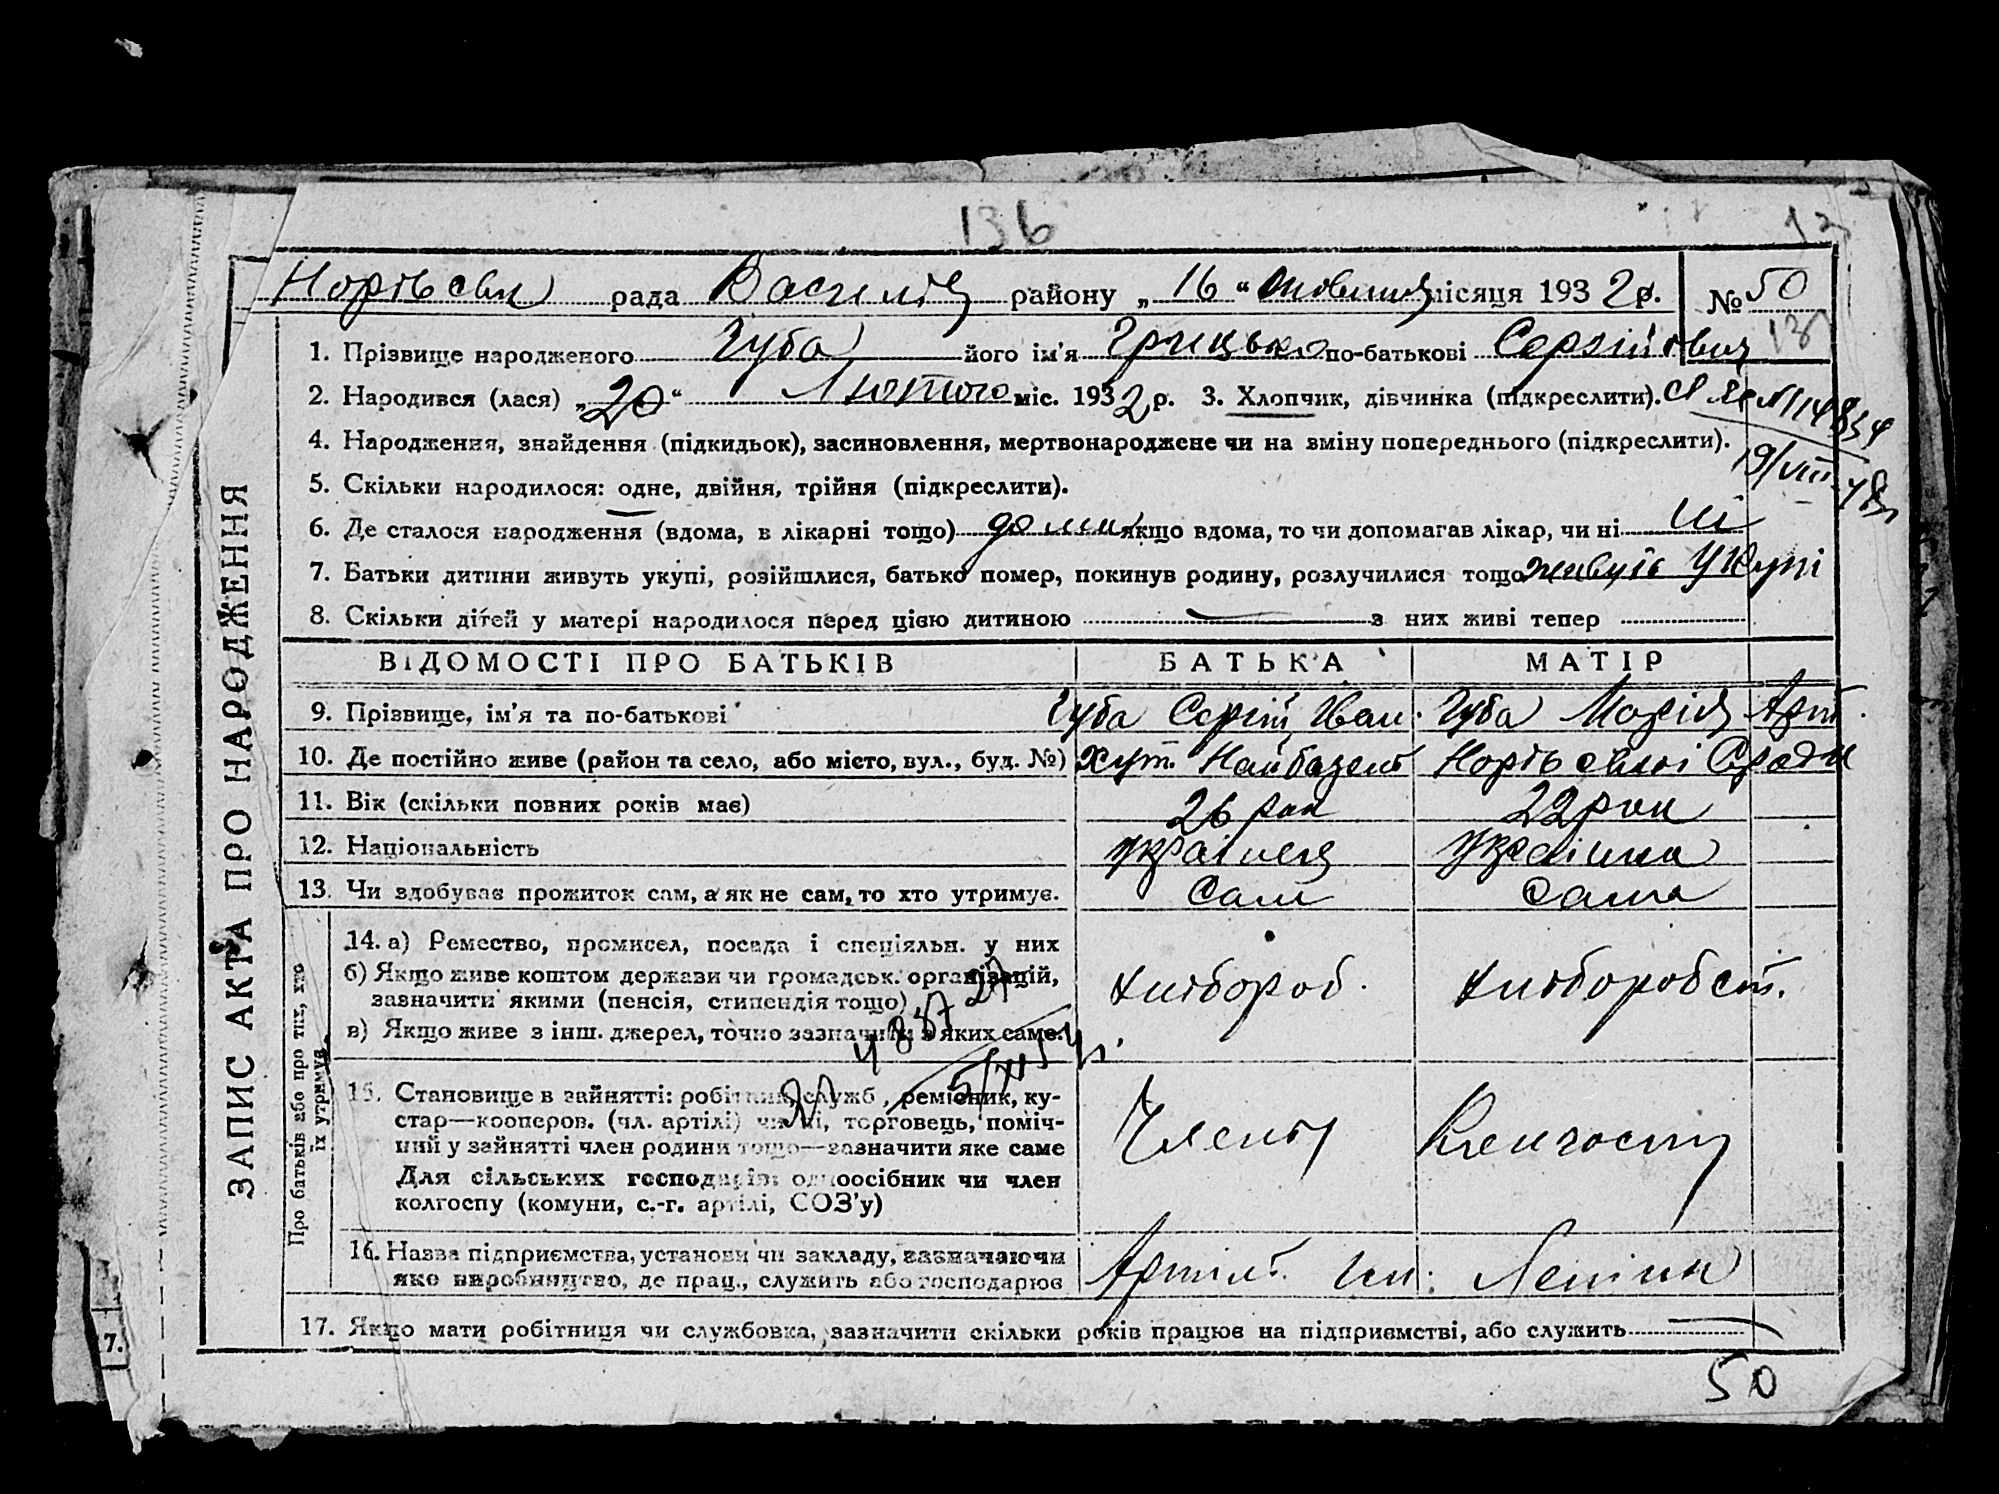 136
рада району „ 16 “ жовтня місяця 1932 р. № 50
1. Прізвище народженого Губа його ім'я Грицько по-батькові Сергійович
2. Народився (лася) „ 20 “ Лютого міс. 1932 р. 3. Хлопчик, дівчинка (підкреслити).
4. Народження, знайдення (підкидьок), засиновлення, мертвонароджене чи на зміну попереднього (підкреслити).
19/VIII 48
5. Скільки народилося: одне, двійня, трійня (підкреслити).
6. Де сталося народження (вдома, в лікарні тощо) дома якщо вдома, то чи допомагав лікар, чи ні ні
7. Батьки дитини живуть укупі, розійшлися, батько помер, покинув родину, розлучилися тощо живуть укупі
8. Скільки дітей у матері народилося перед цією дитиною — з них живі тепер
ЗАПИС АКТА ПРО НАРОДЖЕННЯ
ВІДОМОСТІ ПРО БАТЬКІВ БАТЬКА МАТІР
9. Прізвище, ім'я та по-батькові Губа Сергій Іван. Губа Марія
10. Де постійно живе (район та село, або місто, вул., буд. №) хут.
11. Вік (скільки повних років має) 26 рок 22 рок
12. Національність Українець Українка
13. Чи здобуває прожиток сам, а як не сам, то хто утримує. Сам Сама
Про батьків або про тих, хто їх утримує.
14. а) Ремество, промисел, посада і спеціяльн. у них
б) Якщо живе коштом держави чи громадськ. організацій,
зазначити якими (пенсія, стипендія тощо)
хлібороб. хлібороб ст.
в) Якщо живе з інш. джерел, точно зазначити з яких саме.
15. Становище в зайнятті: робітник, служб., ремісник, ку-
стар—кооперов. (чл. артілі) чи ні, торговець, поміч-
ний у зайнятті член родини тощо—зазначити яке саме
Члени Колгоспу
Для сільських господарів: одноосібник чи член
колгоспу (комуни, с.-г. артілі, СОЗ'у)
16. Назва підприємства, установи чи закладу, зазначаючи
яке виробництво, де прац., служить або господарює
Артіль ім. Леніна
17. Якщо мати робітниця чи службовка, зазначити скільки років працює на підприємстві, або служить —
7.
50